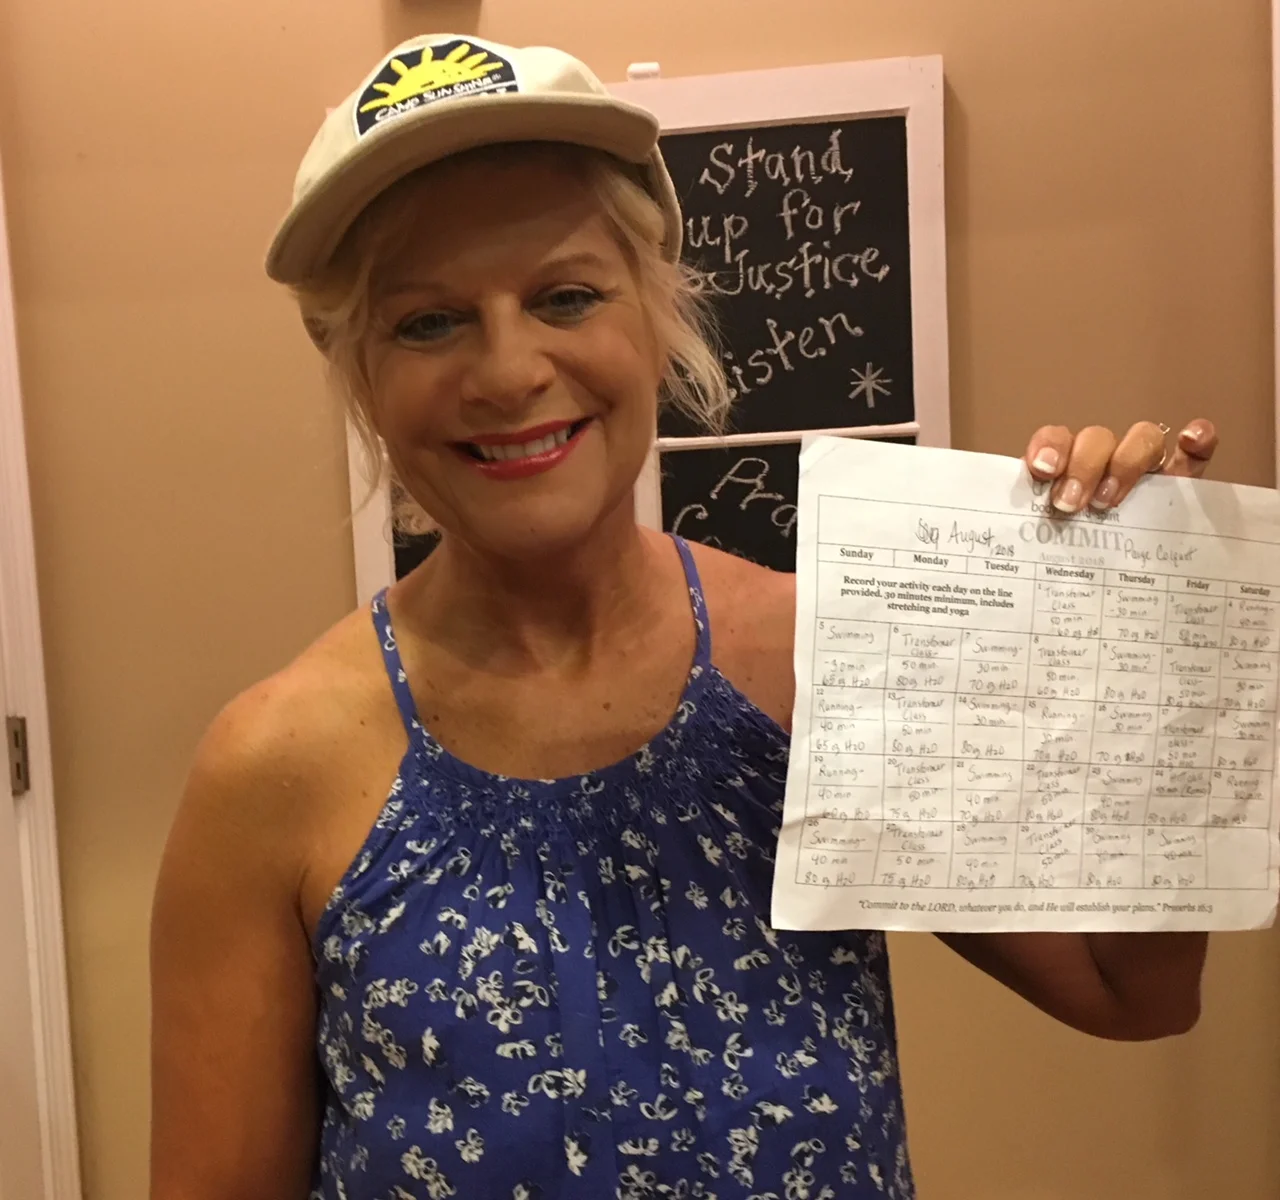 CAMP SUNSHINE
Stand
up for
Justice
Listen
COMMIT
August, 2018
August 2018
Sunday Monday Tuesday Wednesday Thursday Friday Saturday
Record your activity each day on the line
provided, 30 minutes minimum, includes
stretching and yoga
1 Transformer 2 Swimming 3 Transformer 4 Running-
Class -30 min Class 40 min
50 min 70 oz H2O 50 min 80 oz H2O
60 oz H2O
5 Swimming 6 Transformer 7 Swimming- 8 Transformer 9 Swimming- 10 Transformer 11 Swimming
-30 min Class- 30 min Class 30 min Class- 30 min
65 oz H2O 50 min 70 oz H2O 50 min 80 oz H2O 50 min 70 oz H2O
80 oz H2O 60 oz H2O
12 Running- 13 Transformer 14 Swimming- 15 Running- 16 Swimming 17 Transformer 18 Swimming
40 min Class 30 min 30 min 30 min class- 30 min
65 oz H2O 50 min 80 oz H2O 70 oz H2O 70 oz H2O 50 min 80 oz H2O
80 oz H2O
19 Running- 20 Transformer 21 Swimming 22 Transformer 23 Swimming 24 25 Running
40 min Class 40 min Class 40 min 40 min
60 oz H2O 50 min 70 oz H2O 50 min 80 oz H2O
75 oz H2O 80 oz H2O
26 Swimming- 27 Transformer 28 Swimming 29 Transformer 30 Swimming 31 Swimming
40 min Class 40 min Class 40 min 40 min
80 oz H2O 50 min 80 oz H2O 50 min 80 oz H2O 80 oz H2O
75 oz H2O 70 oz H2O
"Commit to the LORD, whatever you do, and He will establish your plans." Proverbs 16:3